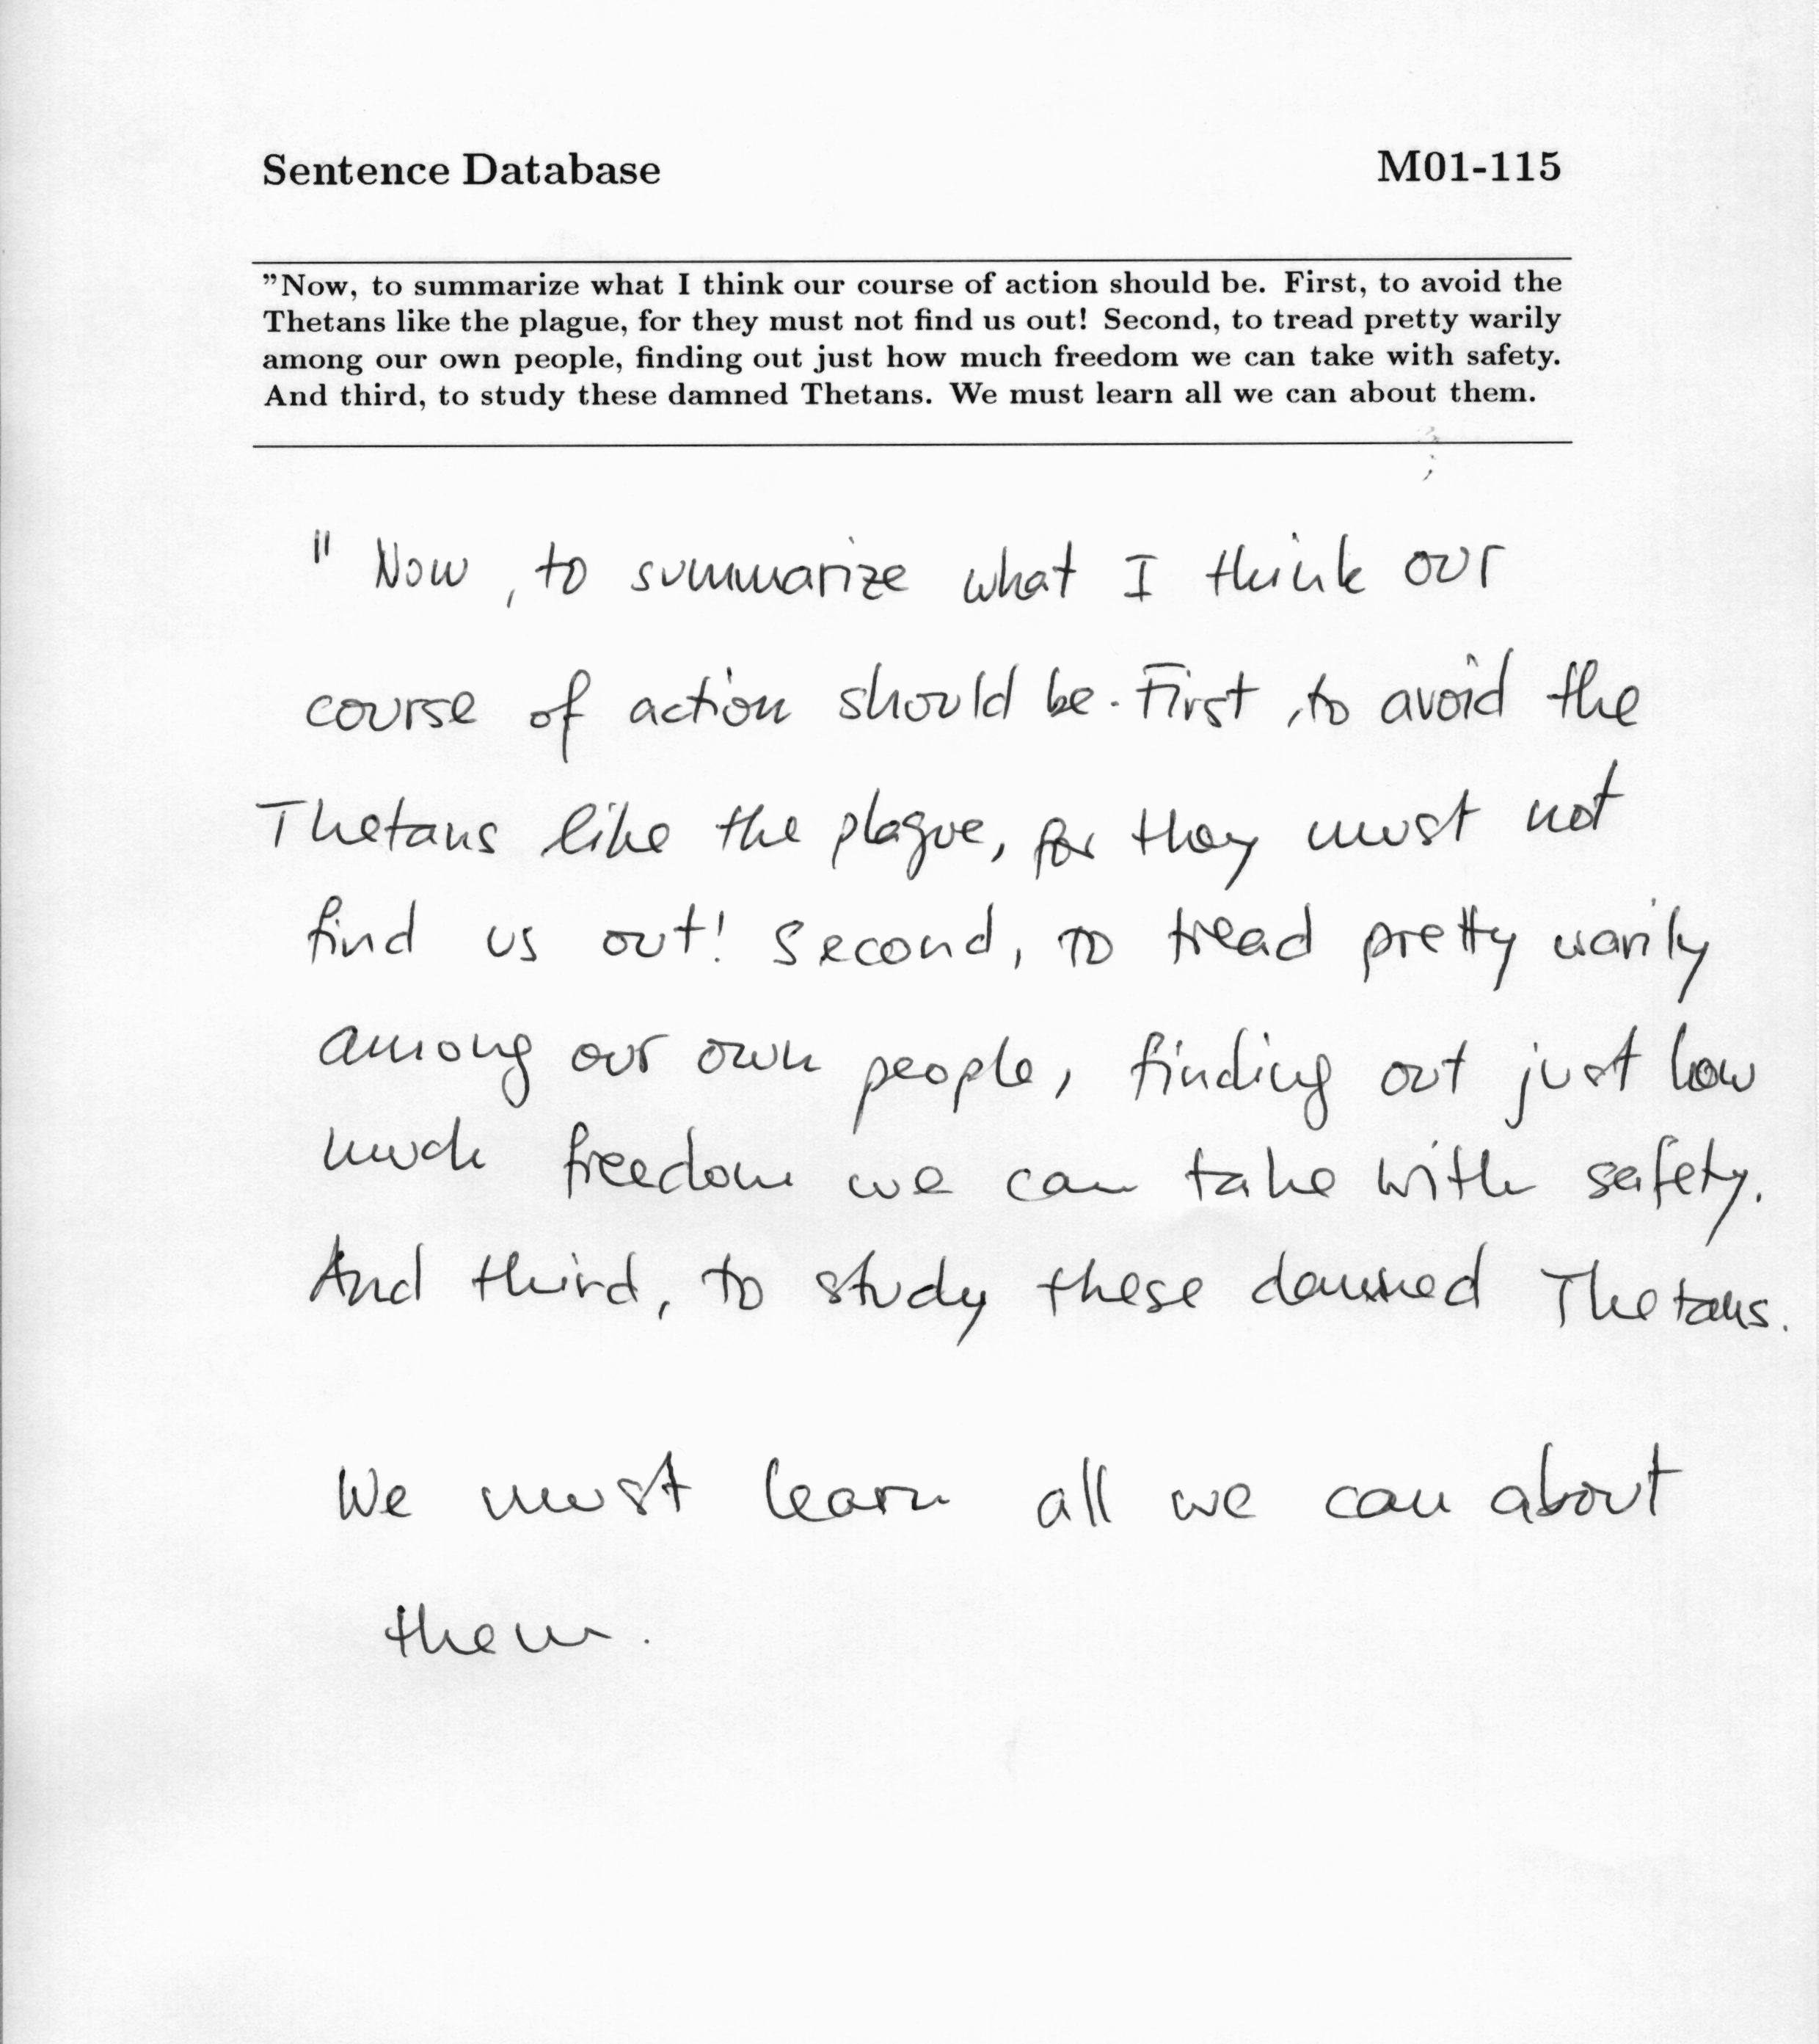 Sentence Database M01-115
”Now, to summarize what I think our course of action should be. First, to avoid the
Thetans like the plague, for they must not find us out! Second, to tread pretty warily
among our own people, finding out just how much freedom we can take with safety.
And third, to study these damned Thetans. We must learn all we can about them.
" Now, to summarize what I think our
course of action should be. First, to avoid the
Thetans like the plague, for they must not
find us out! Second, to tread pretty warily
among our own people, finding out just how
much freedom we can take with safety.
And third, to study these damned Thetans.
We must learn all we can about
them.